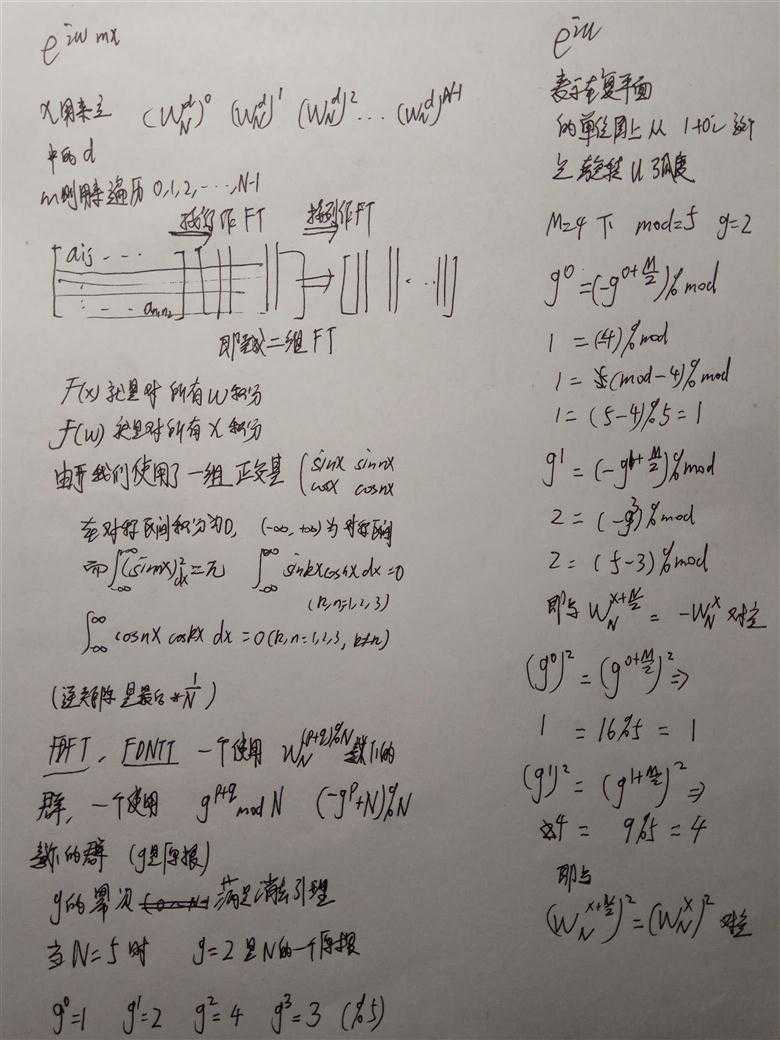 e^{iw mx}
x用来主 (W_N^d)^0 (W_N^d)^1 (W_N^d)^2 ... (W_N^d)^{N-1}
中的d
m则用来遍历 0,1,2,...,N-1
按行作FT 按列作FT
[aij ... ... a_{n1n2}]
即 二维FT
F(x) 就是对所有w积分
f(w) 就是对所有x积分
由于我们使用了一组正交基 (sinx sinnx
cosx cosnx
在对称区间积分为0, (-∞,+∞)为对称区间
而 ∫_{-∞}^{∞}(sinmx)^2 dx=π ∫_{-∞}^{∞} sinkx cosnx dx=0
(k,n=1,2,3)
∫_{-∞}^{∞} cosnx coskx dx =0(k,n=1,2,3, k≠n)
(逆矩阵是最后*1/N)
FDFT, FDNTT 一个使用 W_N^{(p+q)%N} 的
群, 一个使用 g^{p+q} mod N (-g^p+N)%N
的群 (g是原根)
g的幂次 满足消去引理
当N=5时 g=2是N的一个原根
g^0=1 g^1=2 g^2=4 g^3=3 (%5)
e^{iu}
表示在复平面
的单位圆上从 1+0i 这个
点旋转u弧度
M=4下 mod=5 g=2
g^0=(-g^{0+M/2})%mod
1 =(-4)%mod
1 = (mod-4)%mod
1 = (5-4)%5=1
g^1=(-g^{1+M/2})%mod
2 = (-g^3)%mod
2 = (5-3)%mod
即与 W_N^{x+N/2} = -W_N^x 对应
(g^0)^2 = (g^{0+M/2})^2 ⇒
1 = 16%5 = 1
(g^1)^2 = (g^{1+M/2})^2 ⇒
4 = 9%5 = 4
即与
(W_N^{x+N/2})^2=(W_N^x)^2 对应